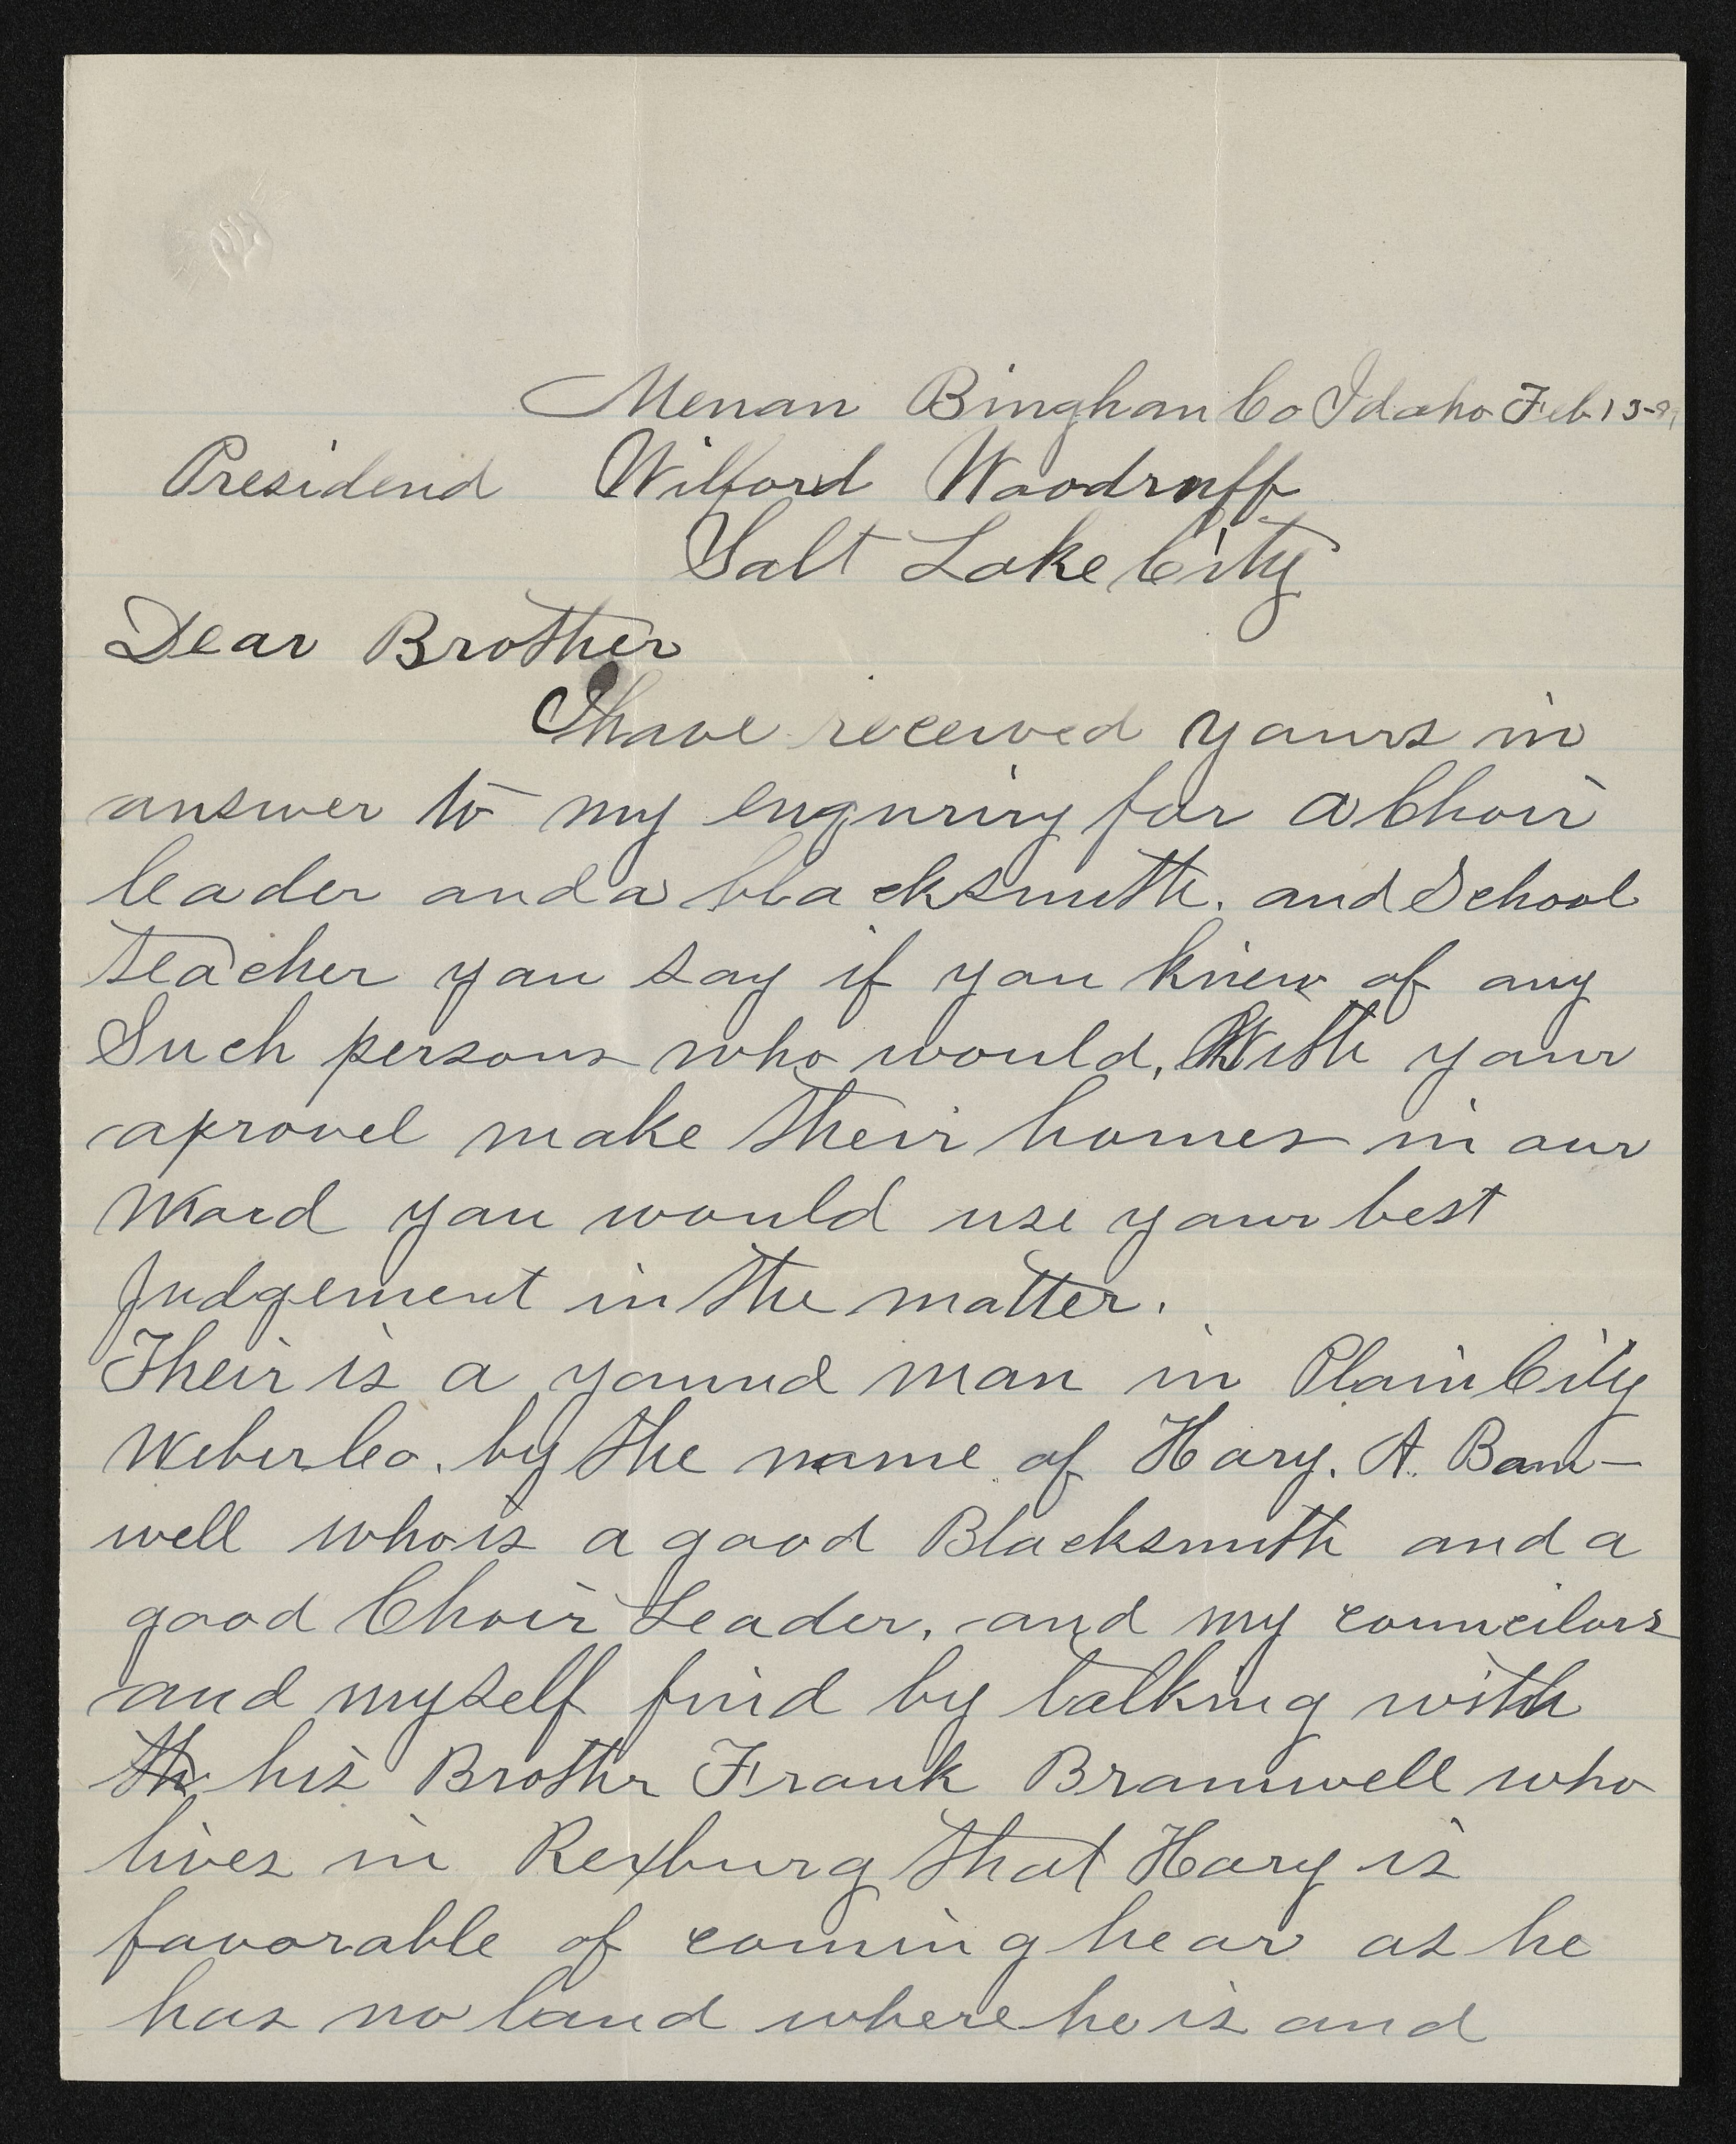 Menan Binghan Co Idaho Feb 13-
Presidend Wilford Woodruff
Salt Lake City
Dear Brother
I have received yours in
answer to my enquriry for a Choir
leader and a blacksmith. and School
teacher you say if you knew of any
Such persons who would, With your
aprovel make their homes in our
Ward you would use your best
Judgement in the matter.
Their is a yound man in Plain City
Weber Co. by the name of Hary. A. Bam-
well who is a good Blacksmith and a
good Choir Leader, and my councilors
and myself find by talking with
th his Brothr Frank Bramwell who
lives in Rexburg that Hary is
favorable of coming hear as he
has no land where he is and